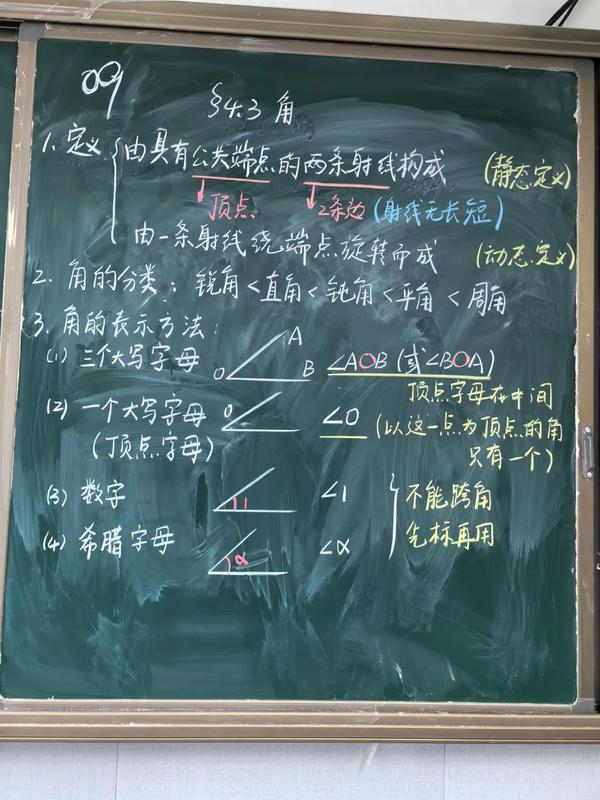 09
§4.3 角
1. 定义 { 由具有公共端点的两条射线构成 (静态定义)
顶点 2条边 (射线无长短)
由一条射线绕端点旋转而成 (动态定义)
2. 角的分类: 锐角<直角<钝角<平角<周角
3. 角的表示方法:
(1) 三个大写字母 O A B ∠AOB (或∠BOA)
顶点字母在中间
(2) 一个大写字母 O ∠O (以这一点为顶点的角
(顶点字母) 只有一个)
(3) 数字 1 ∠1 不能跨角
(4) 希腊字母 α ∠α 先标再用